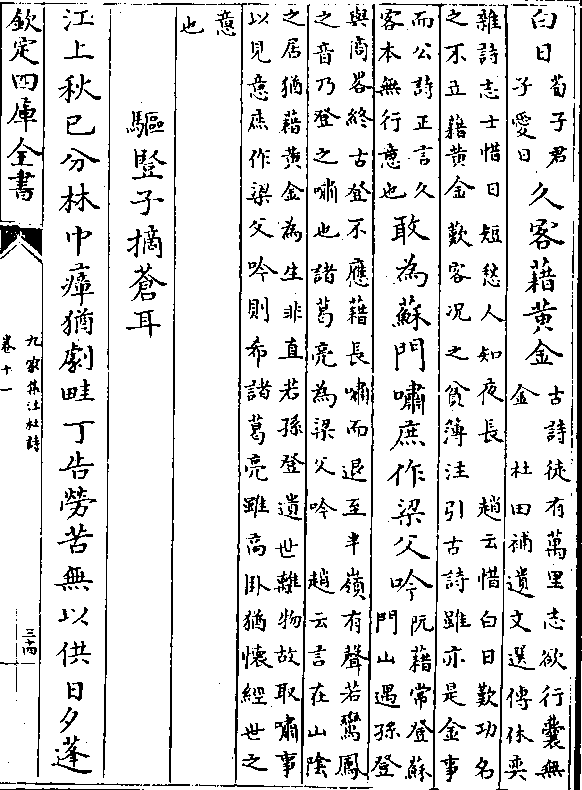 白日荀子君
子愛日久客藉黃金古詩徒有萬里志欲行囊無
金　杜田補遺文選傅休奕
雜詩志士惜日短愁人知夜長　趙云惜白日歎功名
之不立藉黃金歎客况之貧薄注引古詩雖亦是金事
而公詩正言久
客本無行意也敢為蘇門嘯庶作梁父吟阮藉常登蘇
門山遇孫登
與商畧終古登不應藉長嘯而退至半嶺有聲若鸞鳳
之音乃登之嘯也諸葛亮為梁父吟　趙云言在山陰
之居猶藉黃金為生非直若孫登遺世離物故取嘯事
以見意庶作梁父吟則希諸葛亮雖高卧猶懷經世之
意
也
驅豎子摘蒼耳
江上秋已分林中瘴猶劇畦丁告勞苦無以供日夕蓬
欽定四庫全書
九家集注杜詩
卷十一
三十四